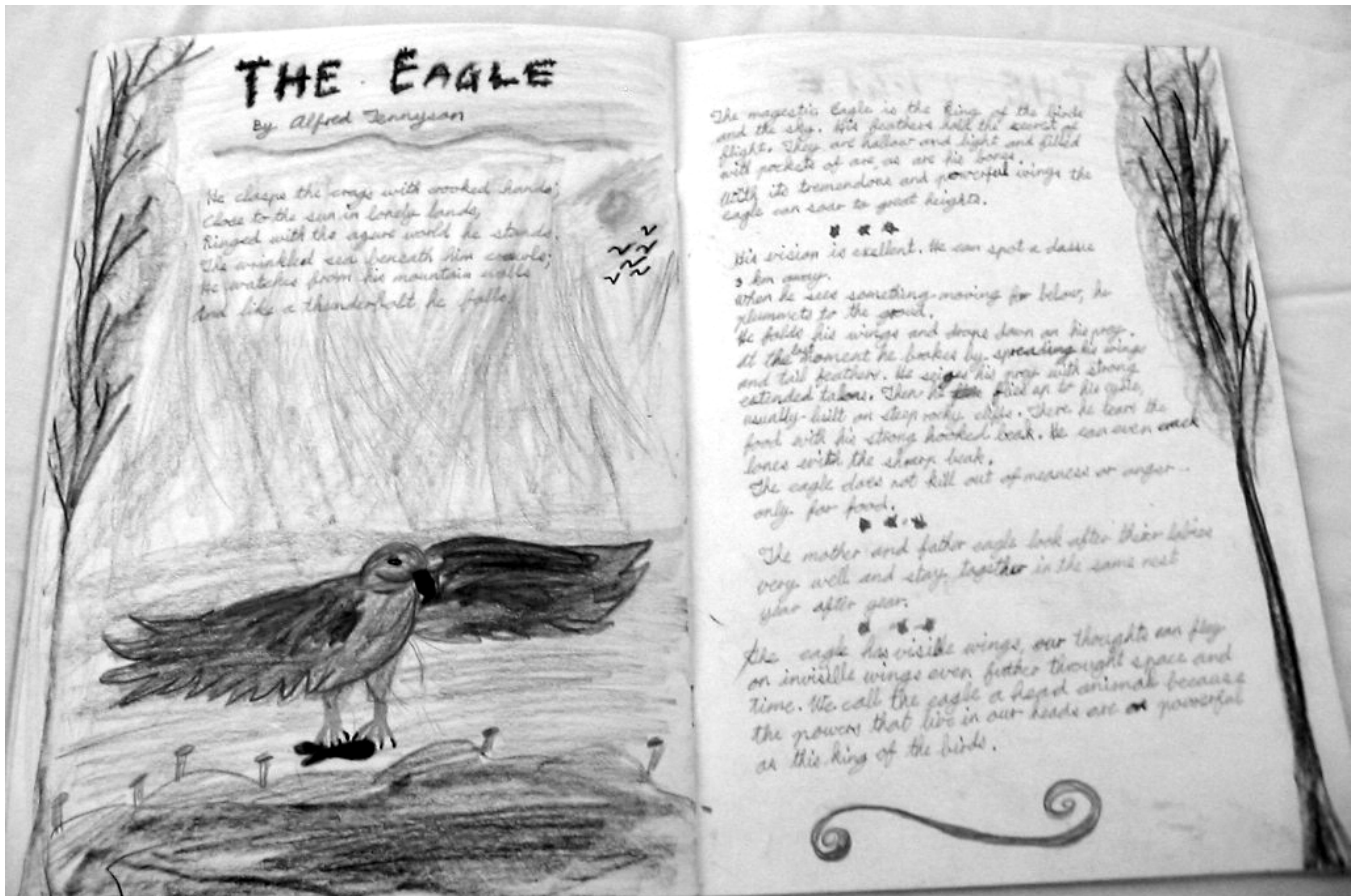 THE EAGLE
By Alfred Tennyson
He clasps the crags with crooked hands;
Close to the sun in lonely lands,
Ringed with the azure world he stands.
The wrinkled sea beneath him crawls;
He watches from his mountain walls
And like a thunderbolt he falls.
The magestic Eagle is the King of the birds
and the sky. His feathers hold the secret of
flight. They are hollow and light and filled
with pockets of are, as are his bones.
With its tremendous and powerful wings the
eagle can soar to great heights.
His vision is exellent. He can spot a dassie
3 km away.
When he sees something moving far below, he
plummets to the groud.
He folds his wings and drops down on his prey.
At the last moment he brakes by spreading his wings
and tail feathers. He seizes his prey with strong
extended talons. Then he flies up to his eyrie,
usually built on steep rocky cliffs. There he tears the
food with his strong hooked beak. He can even crack
bones with the sharp beak.
The eagle does not kill out of meaness or anger
only for food.
The mother and father eagle look after thier babies
very well and stay together in the same nest
year after year.
The eagle has visible wings, our thoughts can fly
on invisible wings even further throught space and
time. We call the eagle a head animal because
the powers that live in our heads are as powerful
as this king of the birds.